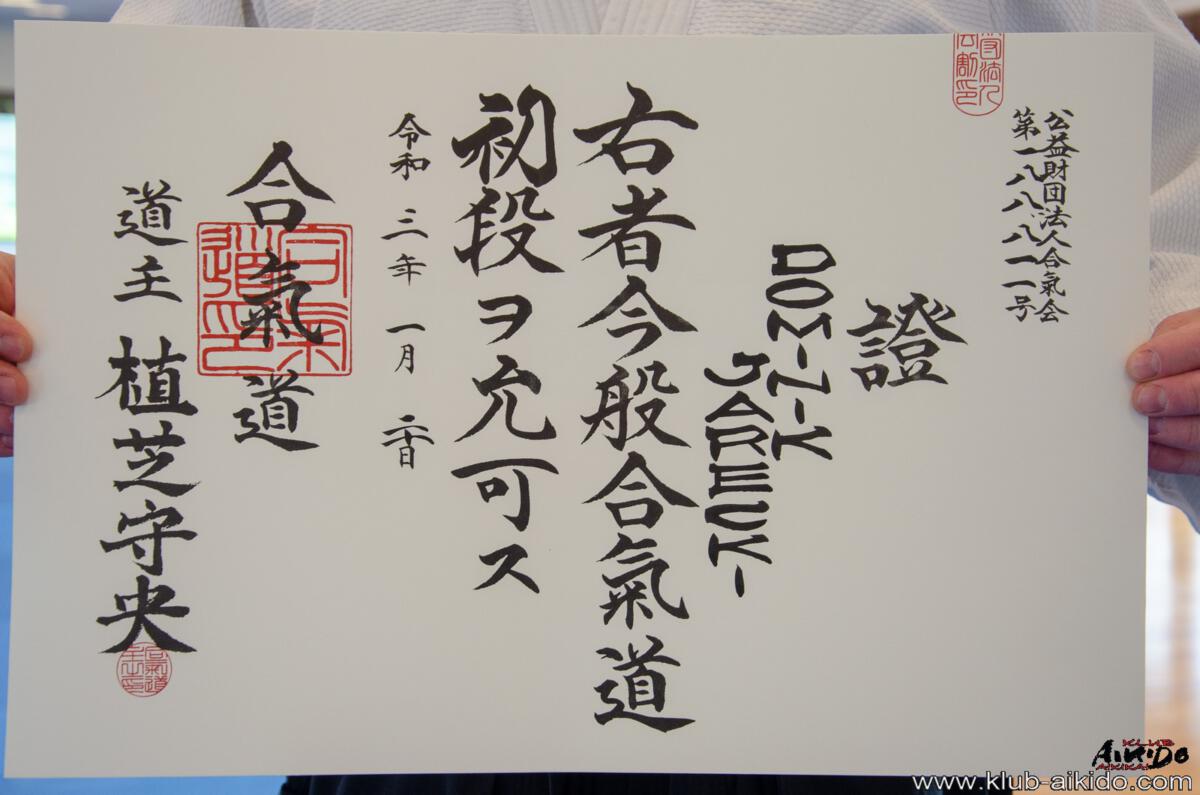 公益財団法人合氣会
第一八八八一一号
證
DOMINIK
JARECKI
右者今般合氣道
初段ヲ允可ス
令和三年一月二十日
合氣道
道主 植芝守央
KLUB
AIKIDO
AIKIKAI
www.klub-aikido.com